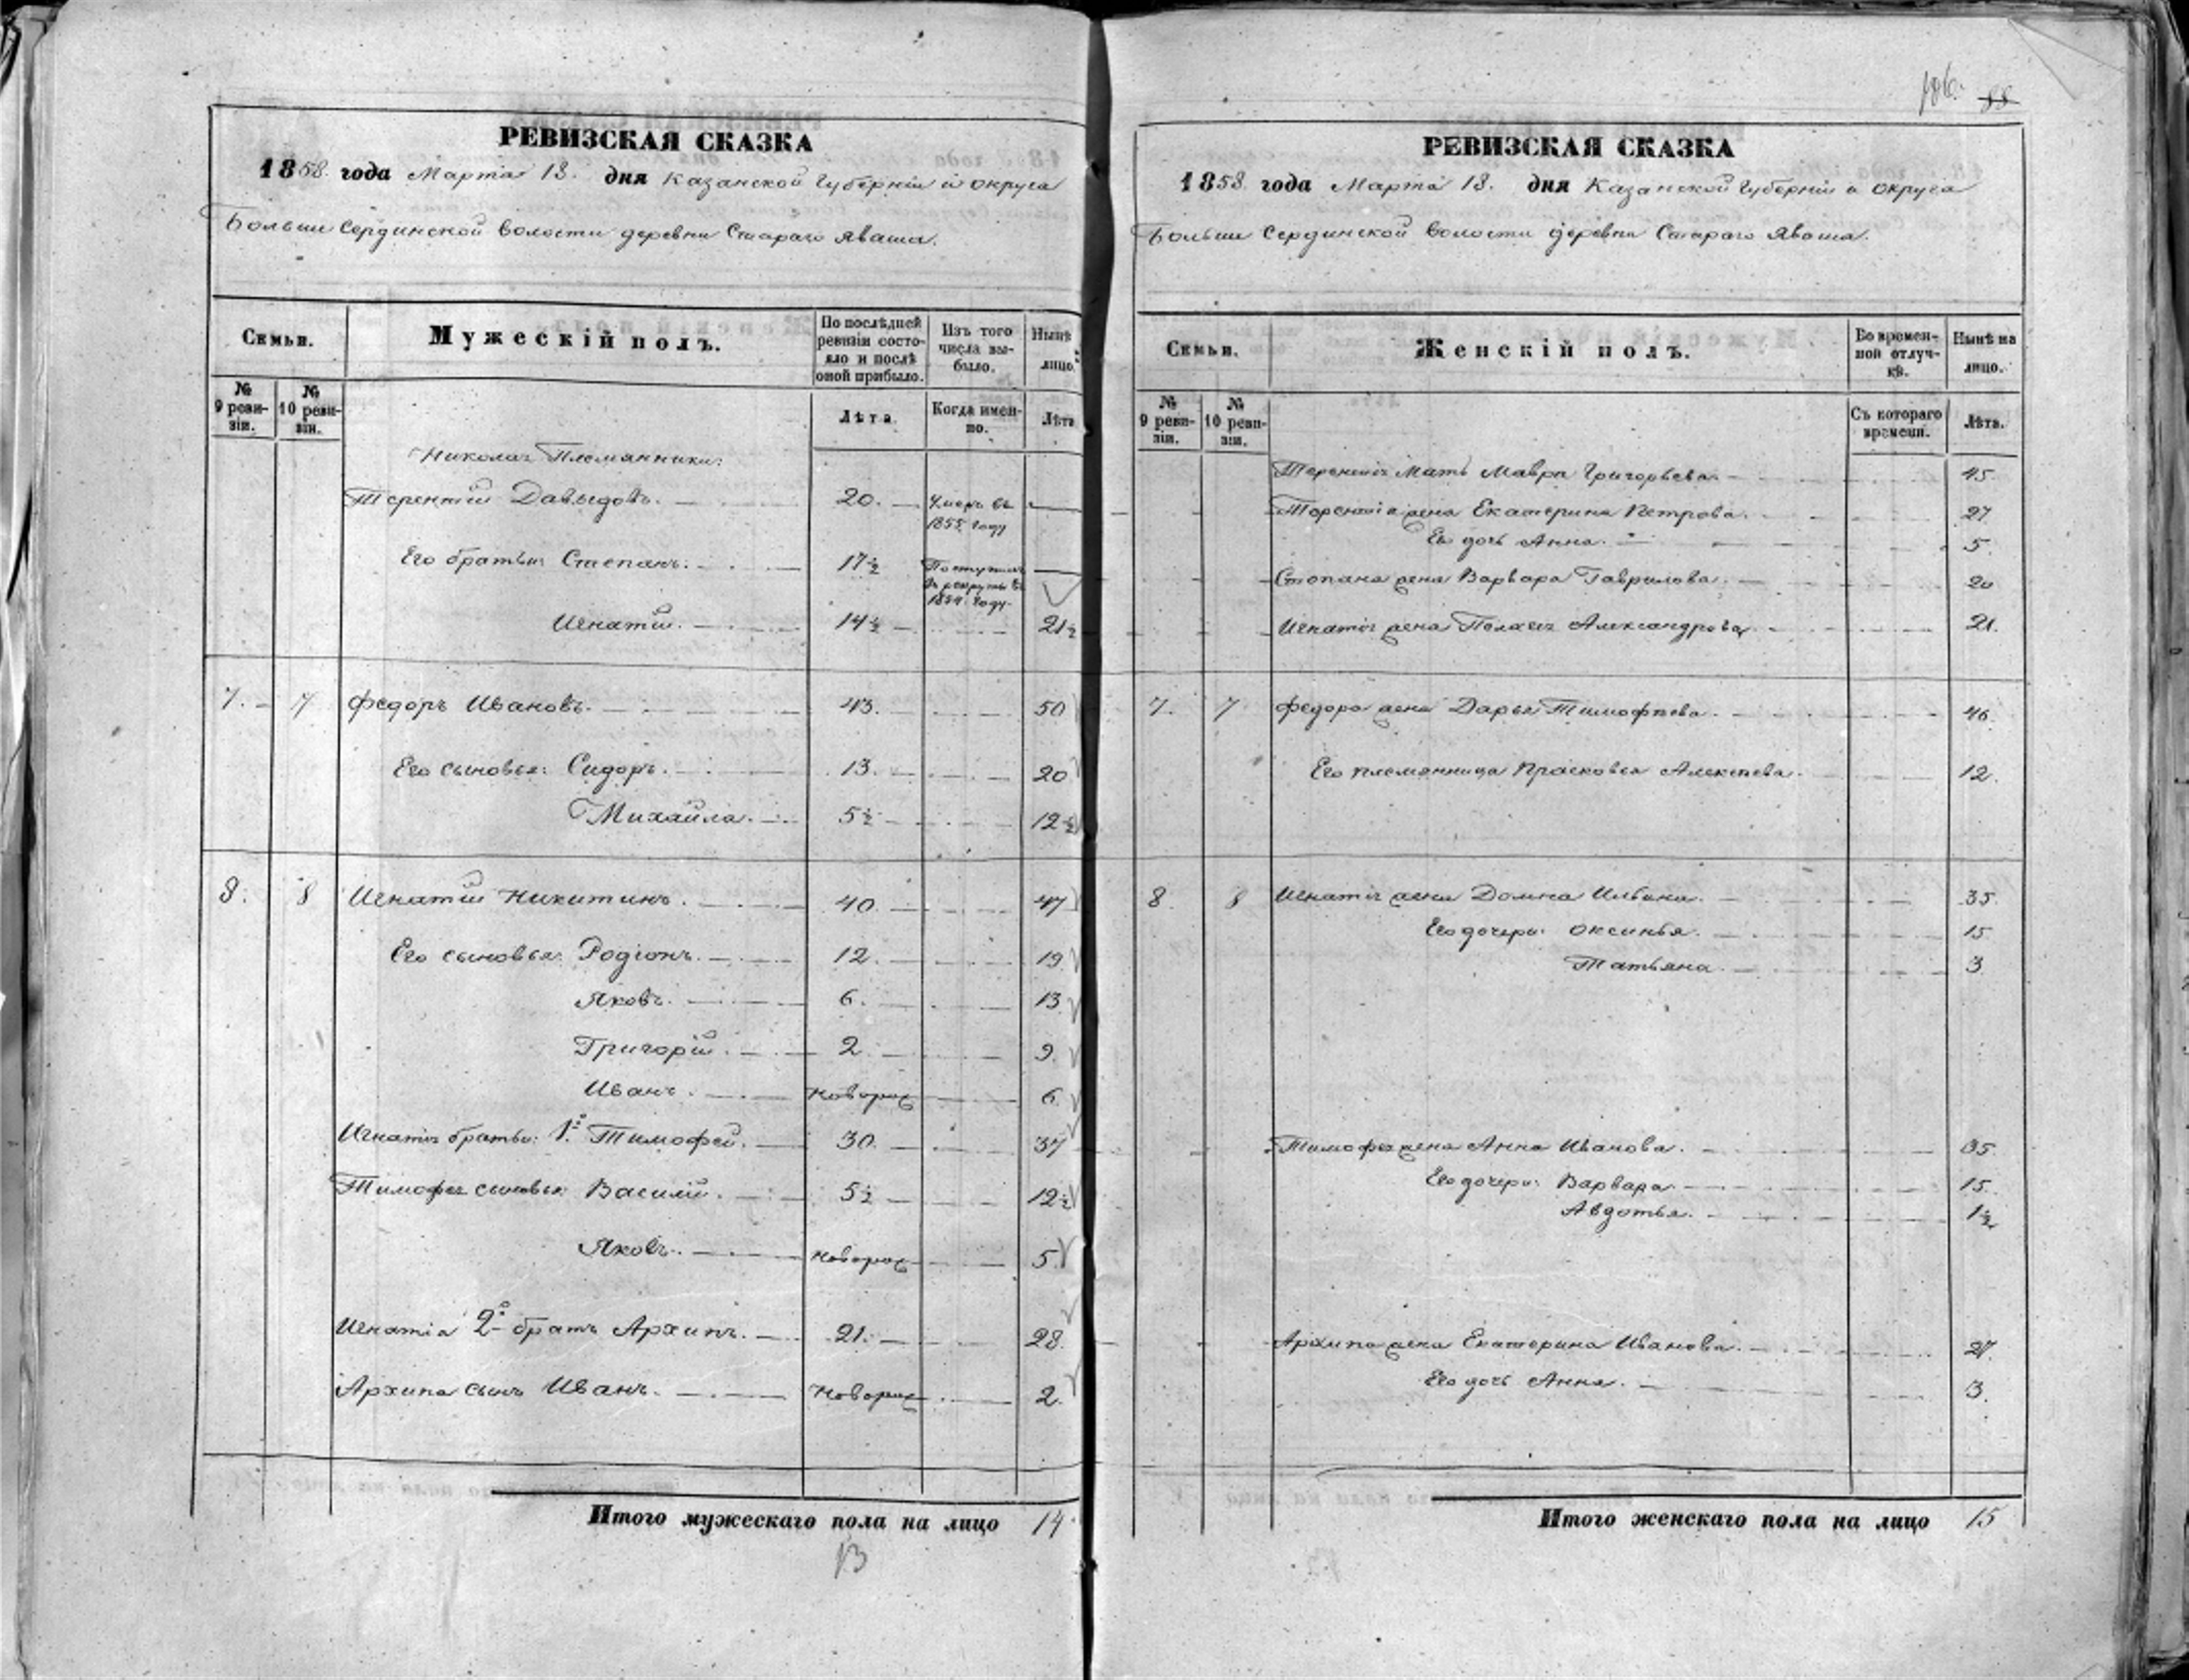 106. 88
РЕВИЗСКАЯ СКАЗКА
1858. года Марта 13. дня Казанской Губерніи и округа
Больше Сердинской волости деревни Стараго Яваша.
Семьи.
Мужескій полъ.
По послѣдней ревизіи состояло и послѣ оной прибыло.
Изъ того числа выбыло.
Нынѣ лицо.
№ 9 ревизіи.
№ 10 ревизіи.
Лѣта
Когда именно.
Лѣта
Николая Племянники:
Терентій Давыдовъ. 20. Умеръ въ 1855 году
Его братья: Степанъ. 17½ Поступилъ въ рекруты въ 1854 году.
Игнатій. 14½ 21½
7. 7 Федоръ Ивановъ. 43. 50
Его сыновья: Сидоръ. 13. 20
Михайла. 5½ 12½
8. 8 Игнатій Никитинъ. 40. 47
Его сыновья: Родіонъ. 12. 19
Яковъ. 6. 13
Григорій. 2. 9.
Иванъ. Новорож 6
Игнатія братья: 1й Тимофей. 30. 37
Тимофея сыновья Василій. 5½ 12½
Яковъ. Новорож 5
Игнатія 2й братъ Архипъ. 21. 28.
Архипа сынъ Иванъ. Новорож 2.
Итого мужескаго пола на лицо 14
13
РЕВИЗСКАЯ СКАЗКА
1858. года Марта 13. дня Казанской Губерніи и округа
Больше Сердинской волости деревни Стараго Яваша.
Семьи.
Женскій полъ.
Во временной отлучкѣ.
Нынѣ на лицо.
№ 9 ревизіи.
№ 10 ревизіи.
Съ котораго времени.
Лѣта.
Терентія Мать Мавра Григорьева 45.
Терентія жена Екатерина Петрова. 27
Его дочь Анна. 5.
Степана жена Варвара Гаврилова. 20
Игнатія жена Пелагея Александрова 21.
7. 7 Федора жена Дарья Тимофеева. 46.
Его племянница Прасковья Алексѣева. 12.
8. 8 Игнатія жена Домна Ильина. 35.
Его дочери: Оксинья. 15
Татьяна. 3
Тимофея жена Анна Иванова. 35.
Его дочери: Варвара 15.
Авдотья. 1½
Архипа жена Екатерина Иванова. 27.
Его дочь Анна. 3.
Итого женскаго пола на лицо 15